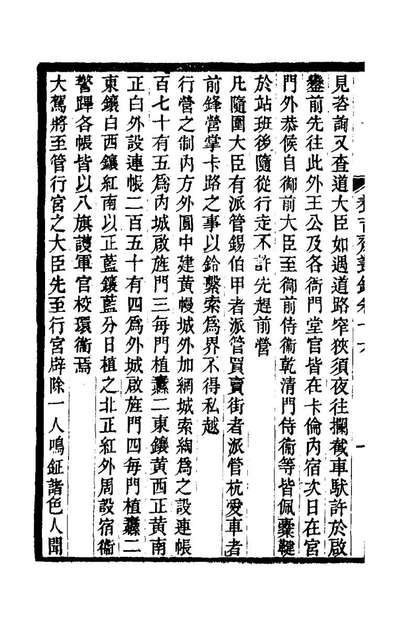 見咨詢又查道大臣如遇道路窄狹須夜往攔截車馱許於啟
鑾前先往此外王公及各衙門堂官皆在卡倫內宿次日在宮
門外恭候自御前大臣至御前侍衞乾清門侍衞等皆佩櫜鞬
於站班後隨從行走不許先趕前營
凡隨圍大臣有派管錫伯甲者派管買賣街者派管杭愛車者
前鋒營掌卡路之事以鈴繫索爲界不得私越
行營之制內方外圓中建黃幔城外加網城索綯爲之設連帳
百七十有五爲內城啟旌門三每門植纛二東鑲黃西正黃南
正白外設連帳二百五十有四爲外城啟旌門四每門植纛二
東鑲白西鑲紅南以正藍鑲藍分日植之北正紅外周設宿衞
警蹕各帳皆以八旗護軍官校環衞焉
大駕將至管行宮之大臣先至行宮辟除一人鳴鉦諸色人聞